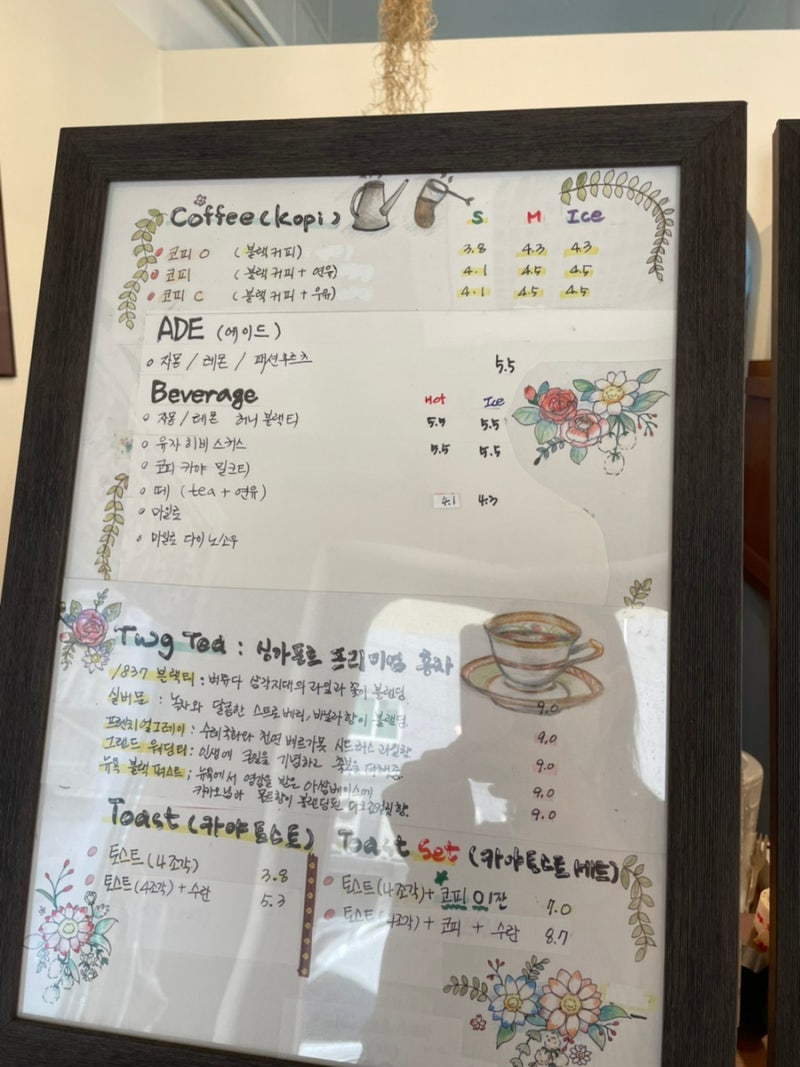 Coffee (kopi) S M Ice
코피 O (블랙커피) 3.8 4.3 4.3
코피 (블랙커피 + 연유) 4.1 4.5 4.5
코피 C (블랙커피 + 우유) 4.1 4.5 4.5
ADE (에이드)
자몽 / 레몬 / 패션후르츠 5.5
Beverage Hot Ice
자몽 / 레몬 허니블랙티 5.5 5.5
유자 히비스커스 5.5 5.5
코피 카야 밀크티
떼 (tea + 연유) 4.1 4.3
마일로
마일로 다이노소우
Twg Tea : 싱가폴르 프리미엄 홍차
1837 블랙티 : 버뮤다 삼각지대의 과일과 꽃이 블렌딩
실버문 : 녹차와 달콤한 스트로베리, 바닐라향이 블렌딩 9.0
프렌치얼그레이 : 수레국화와 천연 베르가못 시트러스 과일향 9.0
그랜드 워딩티 : 인생에 큰일을 기념하고 축복을 9.0
뉴욕 블랙퍼스트 ; 뉴욕에서 영감을 받은 아쌈베이스에 9.0
블렌딩된 9.0
Toast (카야토스트)
토스트 (4조각) 3.8
토스트 (4조각) + 수란 5.3
Toast Set (카야토스트 세트)
토스트 (4조각) + 코피 O 1잔 7.0
토스트 (4조각) + 코피 + 수란 8.7